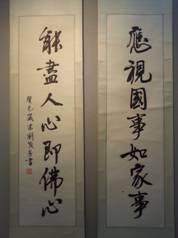 應視國事如家事
能盡人心即佛心